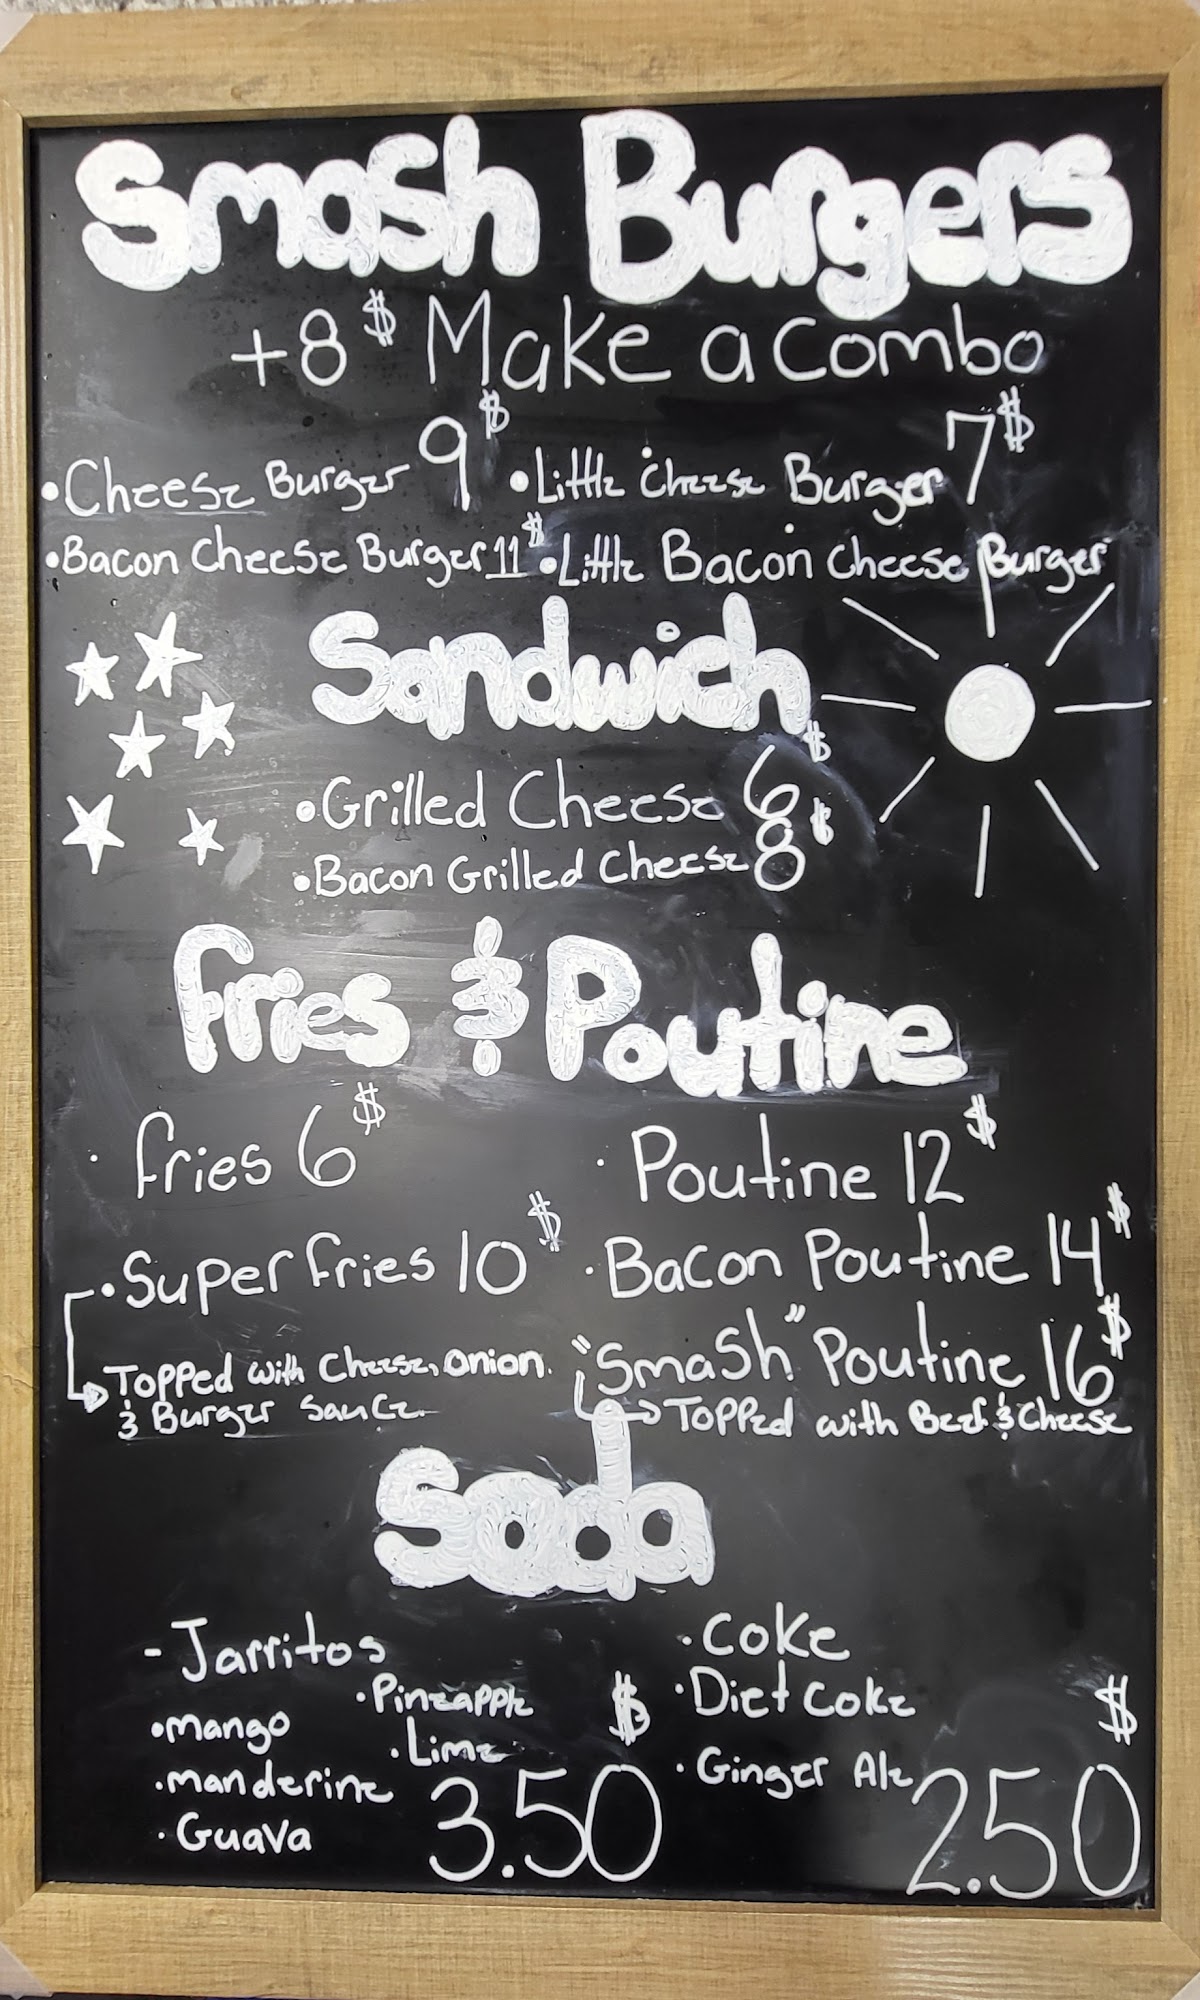 Smash Burgers
+8$ Make a Combo
•Cheese Burger 9$ •Little Cheese Burger 7$
•Bacon Cheese Burger 11$ •Little Bacon Cheese Burger
Sandwich
•Grilled Cheese 6$
•Bacon Grilled Cheese 8$
Fries & Poutine
· Fries 6$
· Poutine 12$
•Super Fries 10$
· Bacon Poutine 14$
Topped with Cheese, Onion.
& Burger Sauce
"Smash" Poutine 16$
Topped with Beef & Cheese
Soda
- Jarritos
•Pineapple
•Mango
•Lime
•Manderine
•Guava
$
3.50
•Coke
•Diet Coke
•Ginger Ale
$
2.50